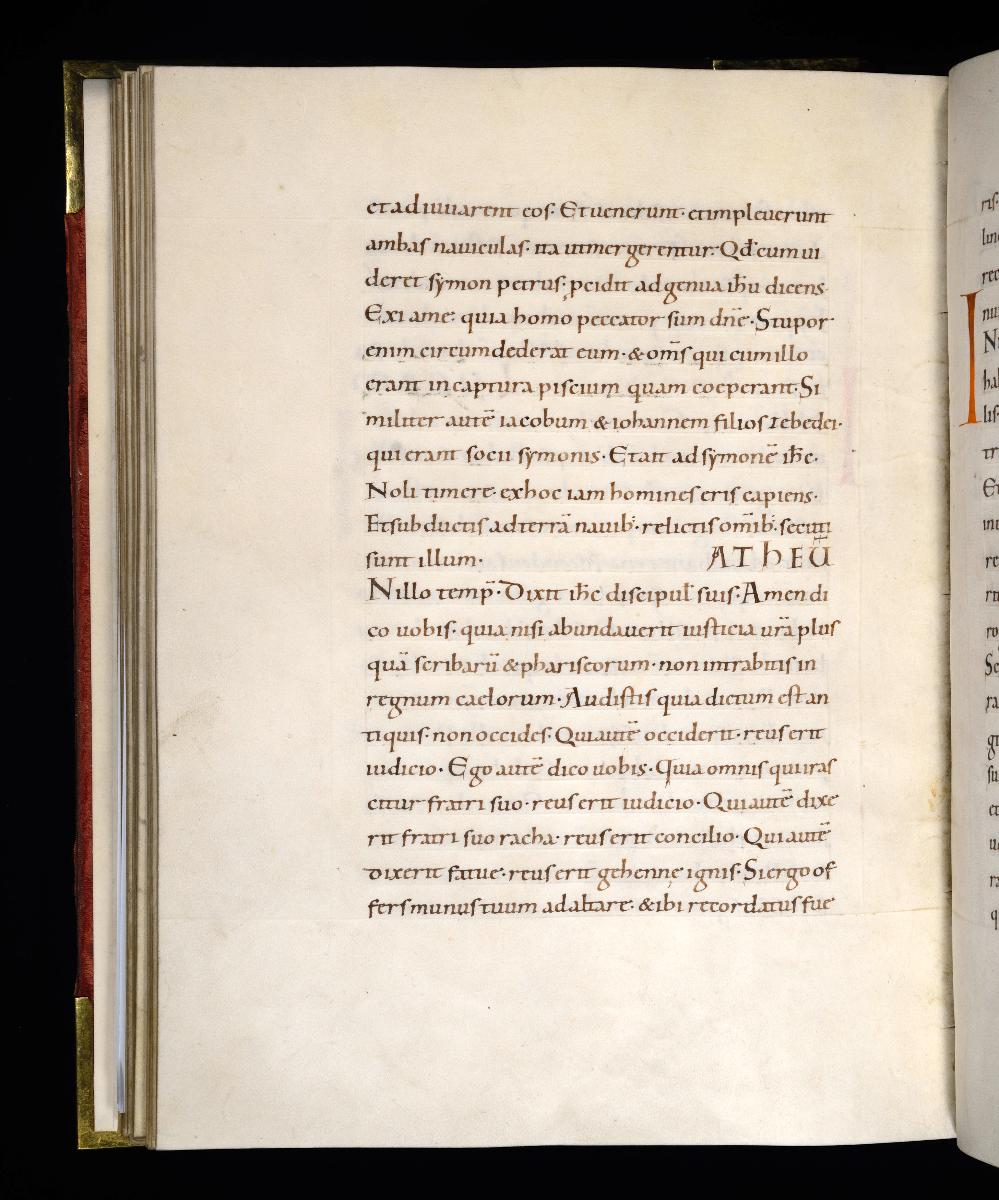 et adiuuarent eos· Et uenerunt· et impleuerunt
ambas nauiculas· ita ut mergerentur· Qđ cum ui
deret symon petrus· pcidit ad genua ihu̅ dicens·
Exi a me· quia homo peccator sum dn̅e· Stupor
enim circumdederat eum· & om̅s qui cum illo
erant in captura piscium quam coeperant· Si
militer aute̅ iacobum & iohannem filios zebedei·
qui erant socii symonis· Et ait ad symone̅ ihc̅·
Noli timere· ex hoc iam homines eris capiens·
Et subductis ad terra̅ nauib;· relictis om̅ib;· secuti
sunt illum· ATHEU̅
Nillo temp̅· Dixit ihc̅ discipul̅ suis· Amen di
co uobis· quia nisi abundauerit iusticia ur̅a plus
qua̅ scribaru̅ & phariseorum· non intrabitis in
regnum caelorum· Audistis quia dictum est an
tiquis· non occides· Qui aute̅ occiderit· reus erit
iudicio· Ego aute̅ dico uobis· Quia omnis qui iras
citur fratri suo· reus erit iudicio· Qui aute̅ dixe
rit fratri suo racha· reus erit concilio· Qui aute̅
dixerit fatue· reus erit gehennę ignis· Si ergo of
fers munus tuum ad altare· & ibi recordatus fue